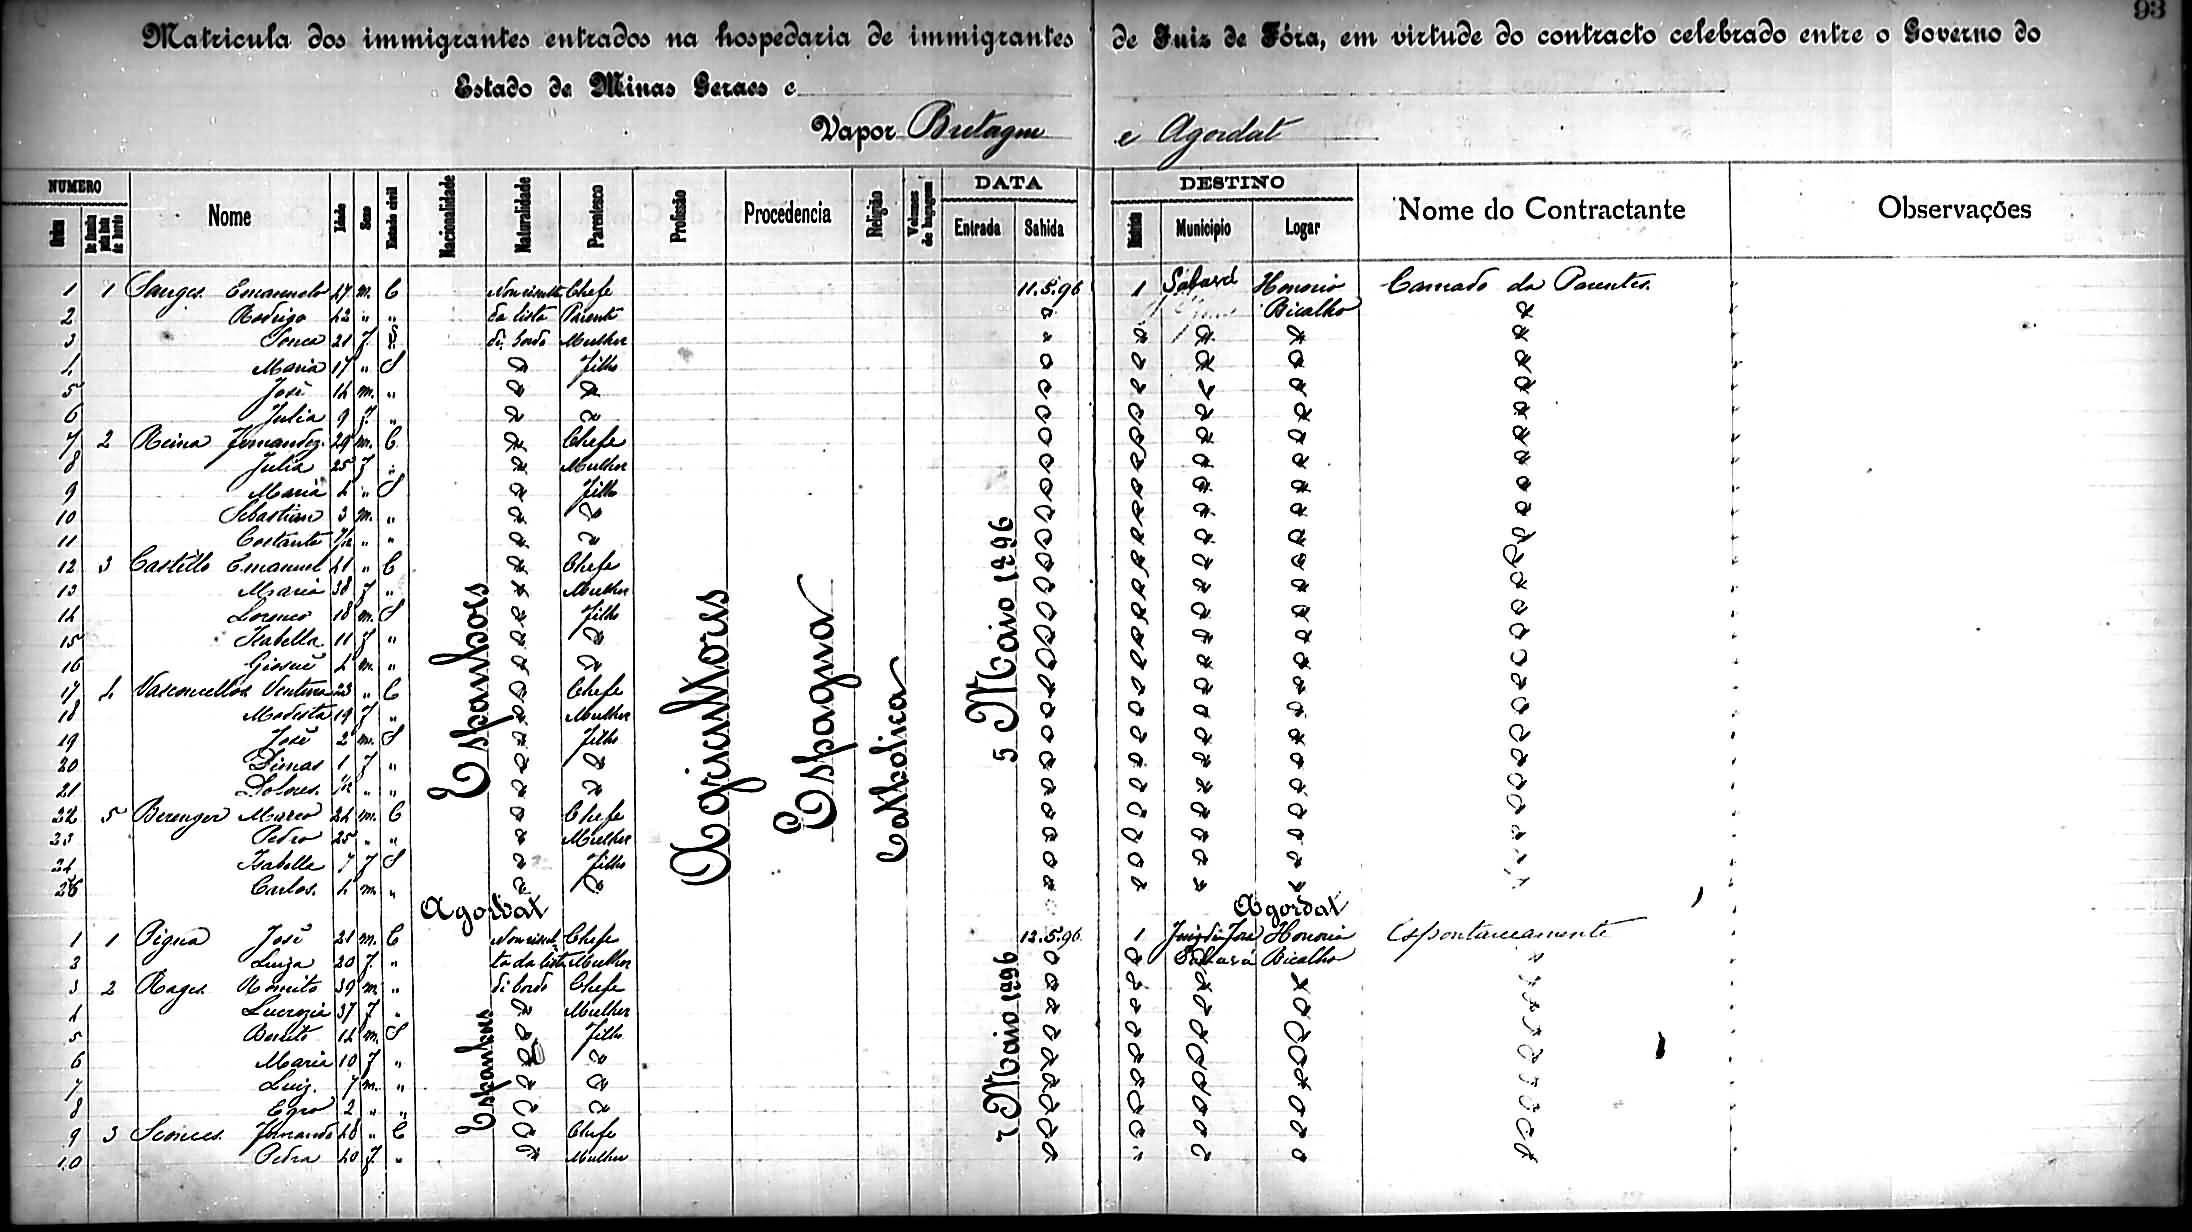 93
Matricula dos immigrantes entrados na hospedaria de immigrantes de Juiz de Fóra, em virtude do contracto celebrado entre o Governo do
Estado de Minas Geraes e
Vapor Bretagne e Agordat
NUMERO DATA DESTINO
Ordem Nome Idade Sexo Estado civil Nacionalidade Naturalidade Parentesco Profissão Procedencia Religião Volumes de bagagem Entrada Sahida Municipio Logar Nome do Contractante Observações
1 1 Emanuelo 47 m. C Chefe 11.5.96 1 Sabará Honorio Chamado da Parentes.
2 Rodrigo 42 " " da lista Parente Bicalho
3 21 f. di bordo Mulher
4 Maria 17 " S Filho
5 José 14 m. "
6 Julia 9 f. "
7 2 Reina Fernandez 29 m. C Chefe
8 Julia 25 f " Mulher
9 Maria 4 " S Filho
10 Sebastian 3 m. "
11 Costante " "
12 3 Castillo Emanuel 41 " C Chefe
13 Maria 38 f " Mulher
14 Lorenzo 18 m. S Filho
15 Isabella 11 f "
16 Giosué 4 m. "
17 4 Vasconcellos Ventura 23 " C Chefe
18 Modesta 19 f " Mulher
19 José 2 m. S Filho
20 Dimas 1 f "
21 Dolores " "
22 5 Berenger Marco 24 m. C Chefe
23 Pedro 25 " " Mulher
24 Isabella 7 f S Filho
25 Carlos 4 m. "
Espanhoes
Agricultores
Espagna
Catholica
5 Maio 1896
Agordat Agordat
1 1 Pigna José 21 m. C Chefe 12.5.96 1 Juiz di Fora Honorio Espontaneamente
2 Luiza 20 f. " ta da lista Mulher Sabará Bicalho
3 2 39 m. " di bordo Chefe
4 Lucrezia 37 f " Mulher
5 Benito 14 m. S Filho
6 Maria 10 f "
7 Luiz 7 m. "
8 2 " "
9 3 Fernando 48 " C Chefe
10 Pedra 40 f. " Mulher
Espanhoes
7 Maio 1896